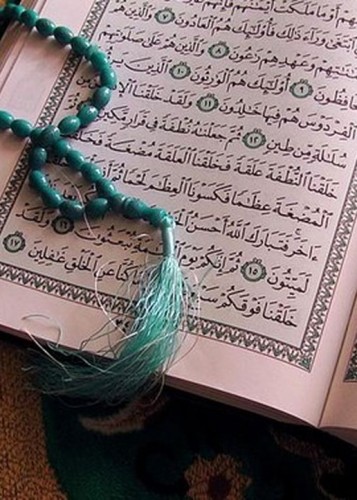 أَوْمَا مَلَكَتْ أَيْمَٰنُهُمْ فَإِنَّهُمْ
ٱبْتَغَىٰ وَرَآءَ ذَٰلِكَ فَأُو۟لَٰٓئِكَ هُمُ ٱلْعَادُونَ ٧ وَٱلَّذِينَ هُمْ
وَعَهْدِهِمْ رَٰعُونَ ٨ وَٱلَّذِينَ هُمْ عَلَىٰ صَلَوَٰتِهِمْ
يُحَافِظُونَ ٩ أُو۟لَٰٓئِكَ هُمُ ٱلْوَٰرِثُونَ ١٠ ٱلَّذِينَ
ٱلْفِرْدَوْسَ هُمْ فِيهَا خَٰلِدُونَ ١١ وَلَقَدْ خَلَقْنَا
سُلَٰلَةٍ مِّن طِينٍ ١٢ ثُمَّ جَعَلْنَٰهُ نُطْفَةً فِى قَرَارٍ مَّكِينٍ
خَلَقْنَا ٱلنُّطْفَةَ عَلَقَةً فَخَلَقْنَا ٱلْعَلَقَةَ مُضْغَةً
ٱلْمُضْغَةَ عِظَٰمًا فَكَسَوْنَا ٱلْعِظَٰمَ لَحْمًا ثُمَّ
ءَاخَرَ فَتَبَارَكَ ٱللَّهُ أَحْسَنُ
لَمَيِّتُونَ ١٥ ثُمَّ إِنَّكُمْ يَوْمَ تُبْعَثُونَ وَلَقَدْ
خَلَقْنَا فَوْقَكُمْ كُنَّا عَنِ ٱلْخَلْقِ غَٰفِلِينَ ١٧